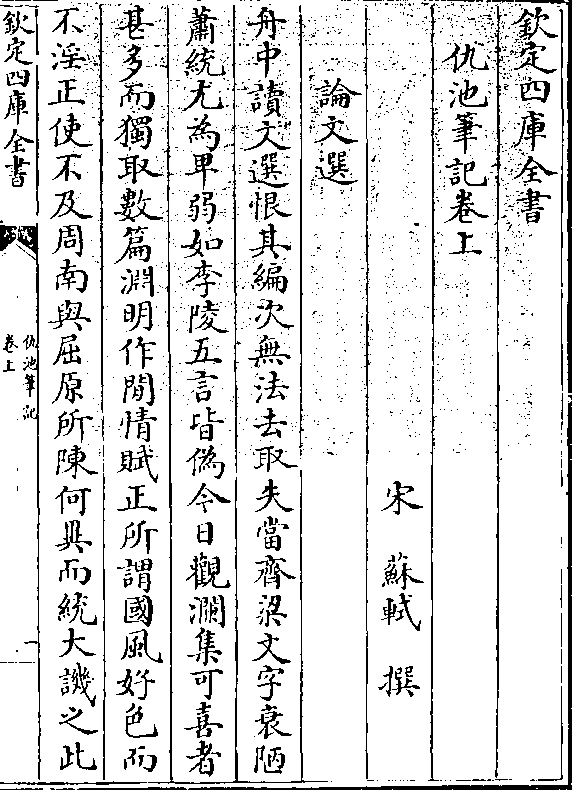 欽定四庫全書
仇池筆記卷上
宋　蘇軾　撰
論文選
舟中讀文選恨其編次無法去取失當齊梁文字衰陋
蕭統尤為卑弱如李陵五言皆偽今日觀淵集可喜者
甚多而獨取數篇淵明作閒情賦正所謂國風好色而
不淫正使不及周南與屈原所陳何異而統大譏之此
欽定四庫全書
仇池筆記
卷上
一